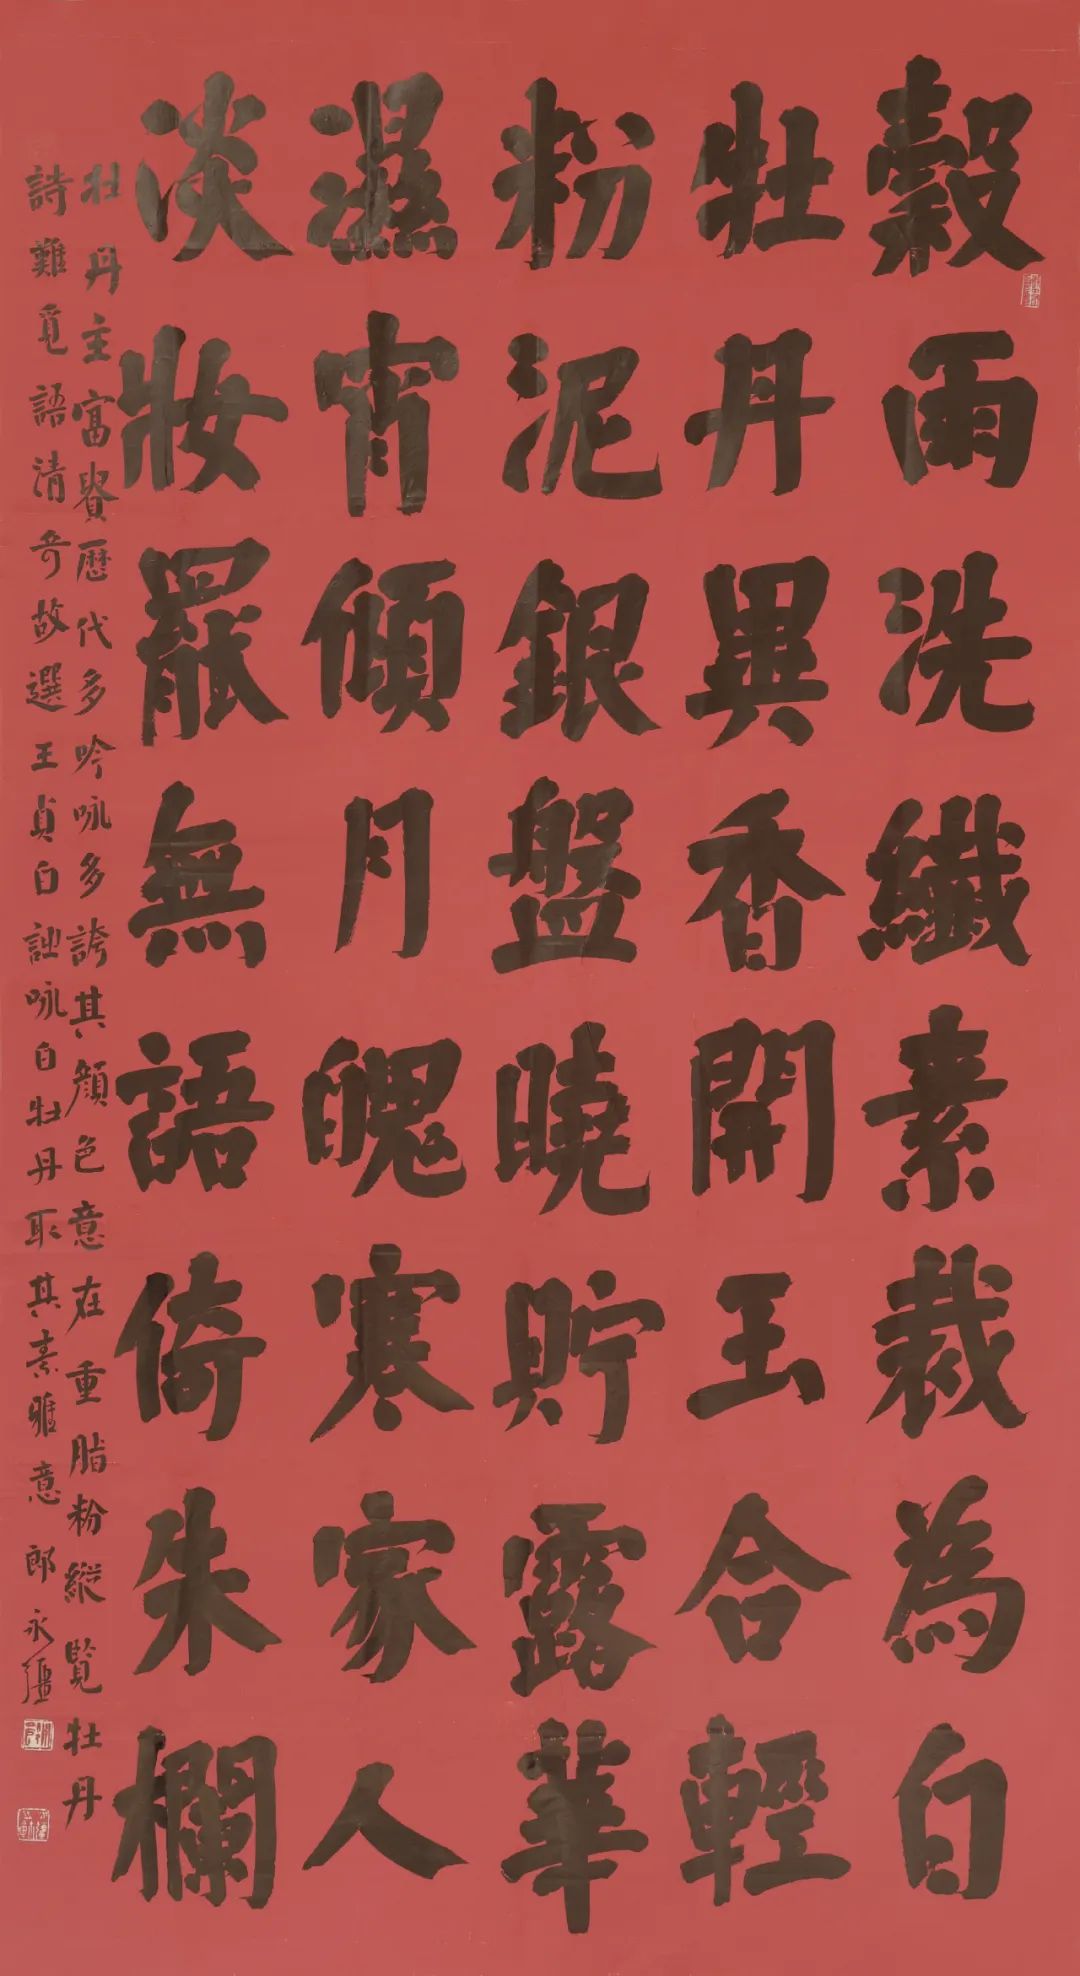 穀雨洗纖素裁為白
牡丹異香開玉合輕
粉泥銀盤曉貯露華
濕宵傾月魄寒家人
淡妝罷無語倚朱欄
牡丹主富貴歷代多吟咏多誇其顏色意在重脂粉縱覽牡丹
詩難覓語清奇故選王貞白咏白牡丹取其素雅意 郎永彊